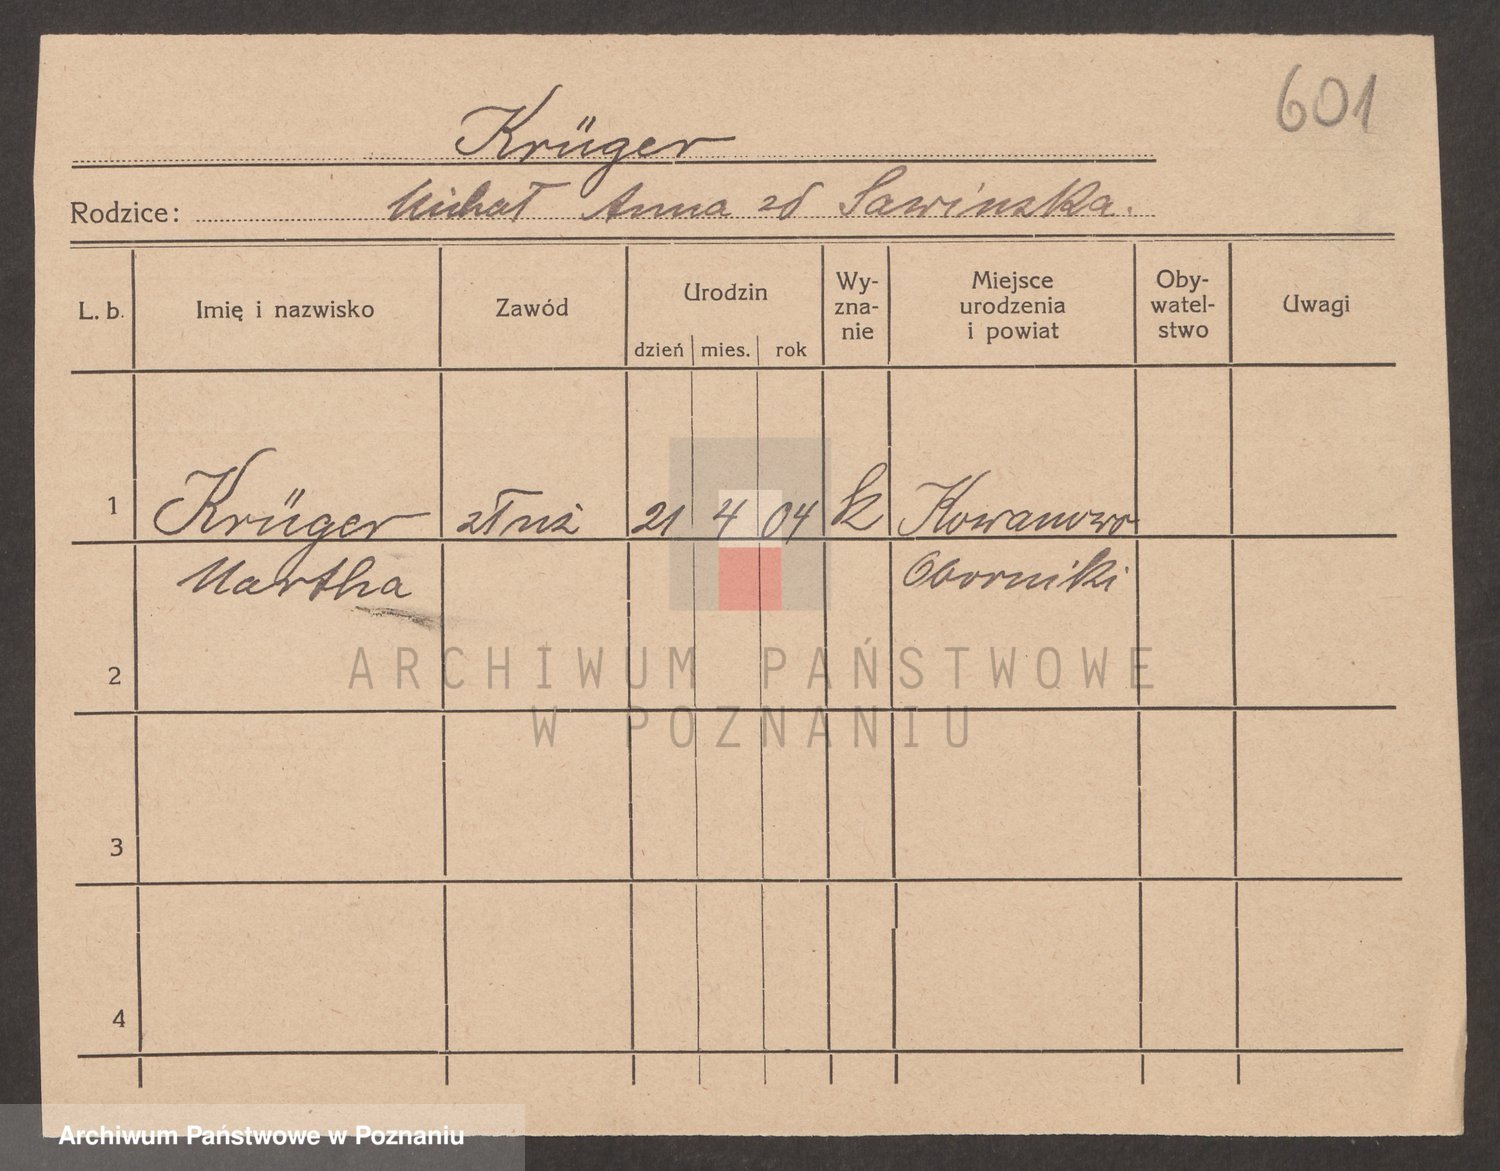 601
Krüger
Rodzice: Michał Anna zd Sawinska.
L. b. Imię i nazwisko Zawód Urodzin dzień mies. rok Wy-zna-nie Miejsce urodzenia i powiat Oby-watel-stwo Uwagi
1 Krüger 21 4 04 k Kowanowo
Martha Oborniki
2
ARCHIWUM PAŃSTWOWE
W POZNANIU
3
4
Archiwum Państwowe w Poznaniu